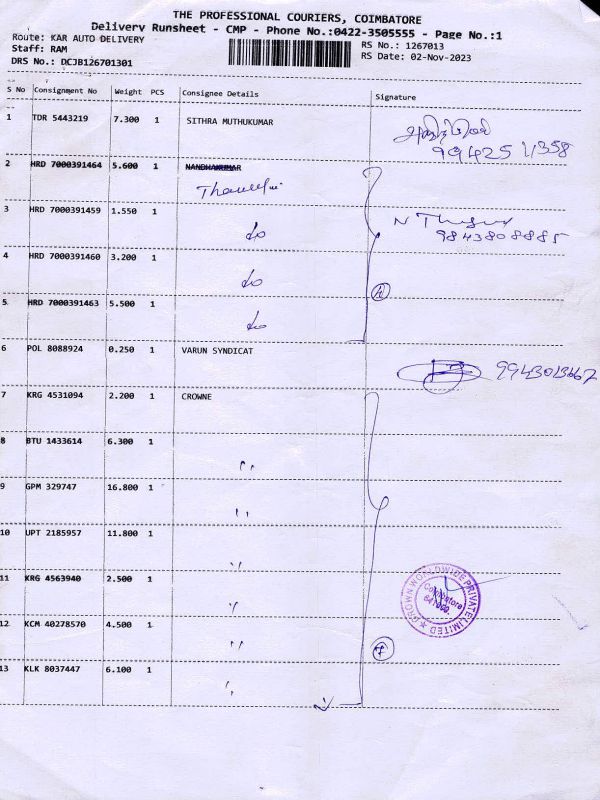 THE PROFESSIONAL COURIERS, COIMBATORE
Delivery Runsheet - CMP - Phone No.:0422-3505555 - Page No.:1
Route: KAR AUTO DELIVERY
Staff: RAM
DRS No.: DCJB126701301
RS No.: 1267013
RS Date: 02-Nov-2023
S No Consignment No Weight PCS Consignee Details Signature
1 TDR 5443219 7.300 1 SITHRA MUTHUKUMAR
2 HRD 7000391464 5.600 1 NANDHAKUMAR
3 HRD 7000391459 1.550 1 do
9843808885
4 HRD 7000391460 3.200 1 do
4
5 HRD 7000391463 5.500 1 do
6 POL 8088924 0.250 1 VARUN SYNDICAT
7 KRG 4531094 2.200 1 CROWNE
8 BTU 1433614 6.300 1 ,,
9 GPM 329747 16.800 1 ,,
10 UPT 2185957 11.800 1 ,,
11 KRG 4563940 2.500 1 ,,
CROWN WORLDWIDE PRIVATE LIMITED
Coimbatore
12 KCM 40278570 4.500 1 ,,
7
13 KLK 8037447 6.100 1 ,,